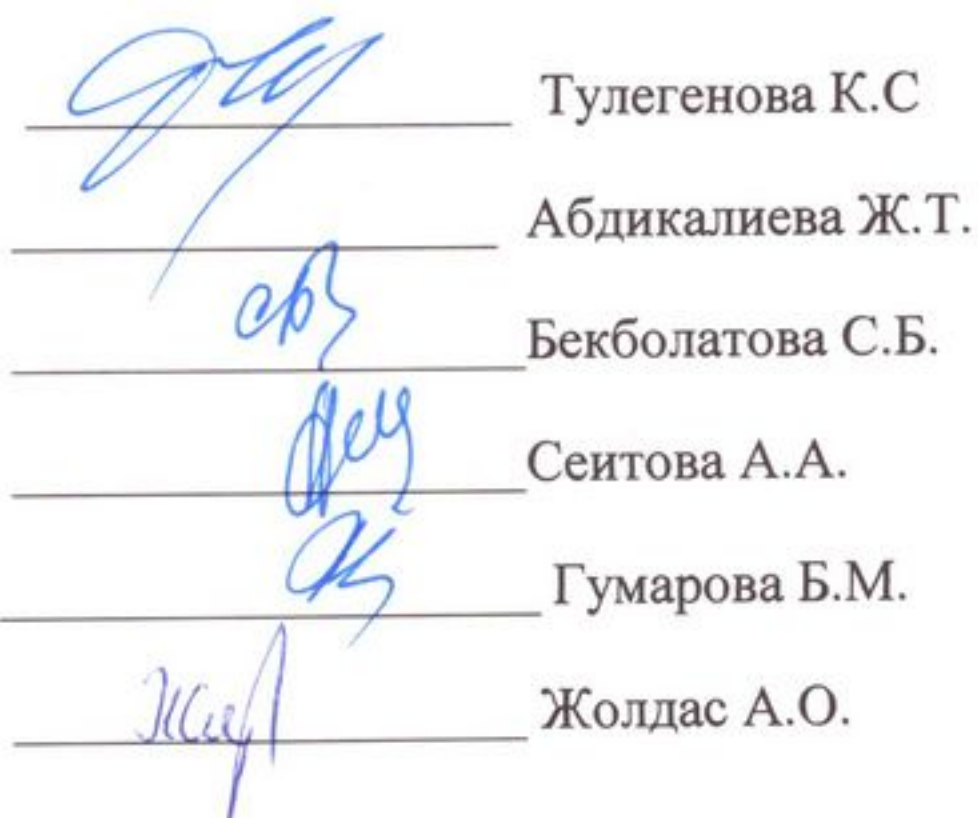 Тулегенова К.С
Абдикалиева Ж.Т.
Бекболатова С.Б.
Сеитова А.А.
Гумарова Б.М.
Жолдас А.О.